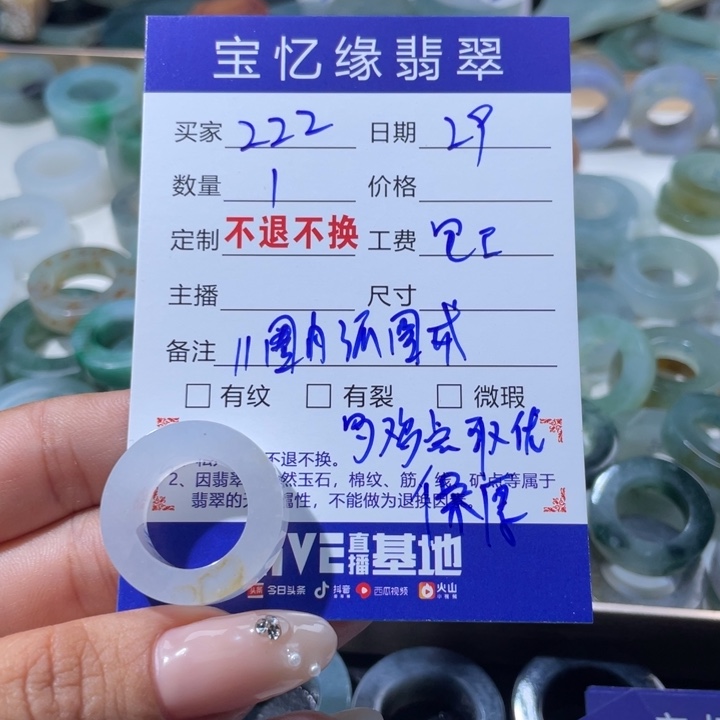 宝忆缘翡翠
买家 222 日期 29
数量 1 价格
定制 不退不换 工费 包工
主播 尺寸
备注 11圈内弧圆戒
□ 有纹 □ 有裂 □ 微瑕
取优
不退不换。
保厚
2、因翡翠 然玉石,棉纹、筋、线、矿点等属于
翡翠的天 属性,不能做为退换因
IVE直播基地
头条 今日头条 抖音 西瓜视频 火山小视频